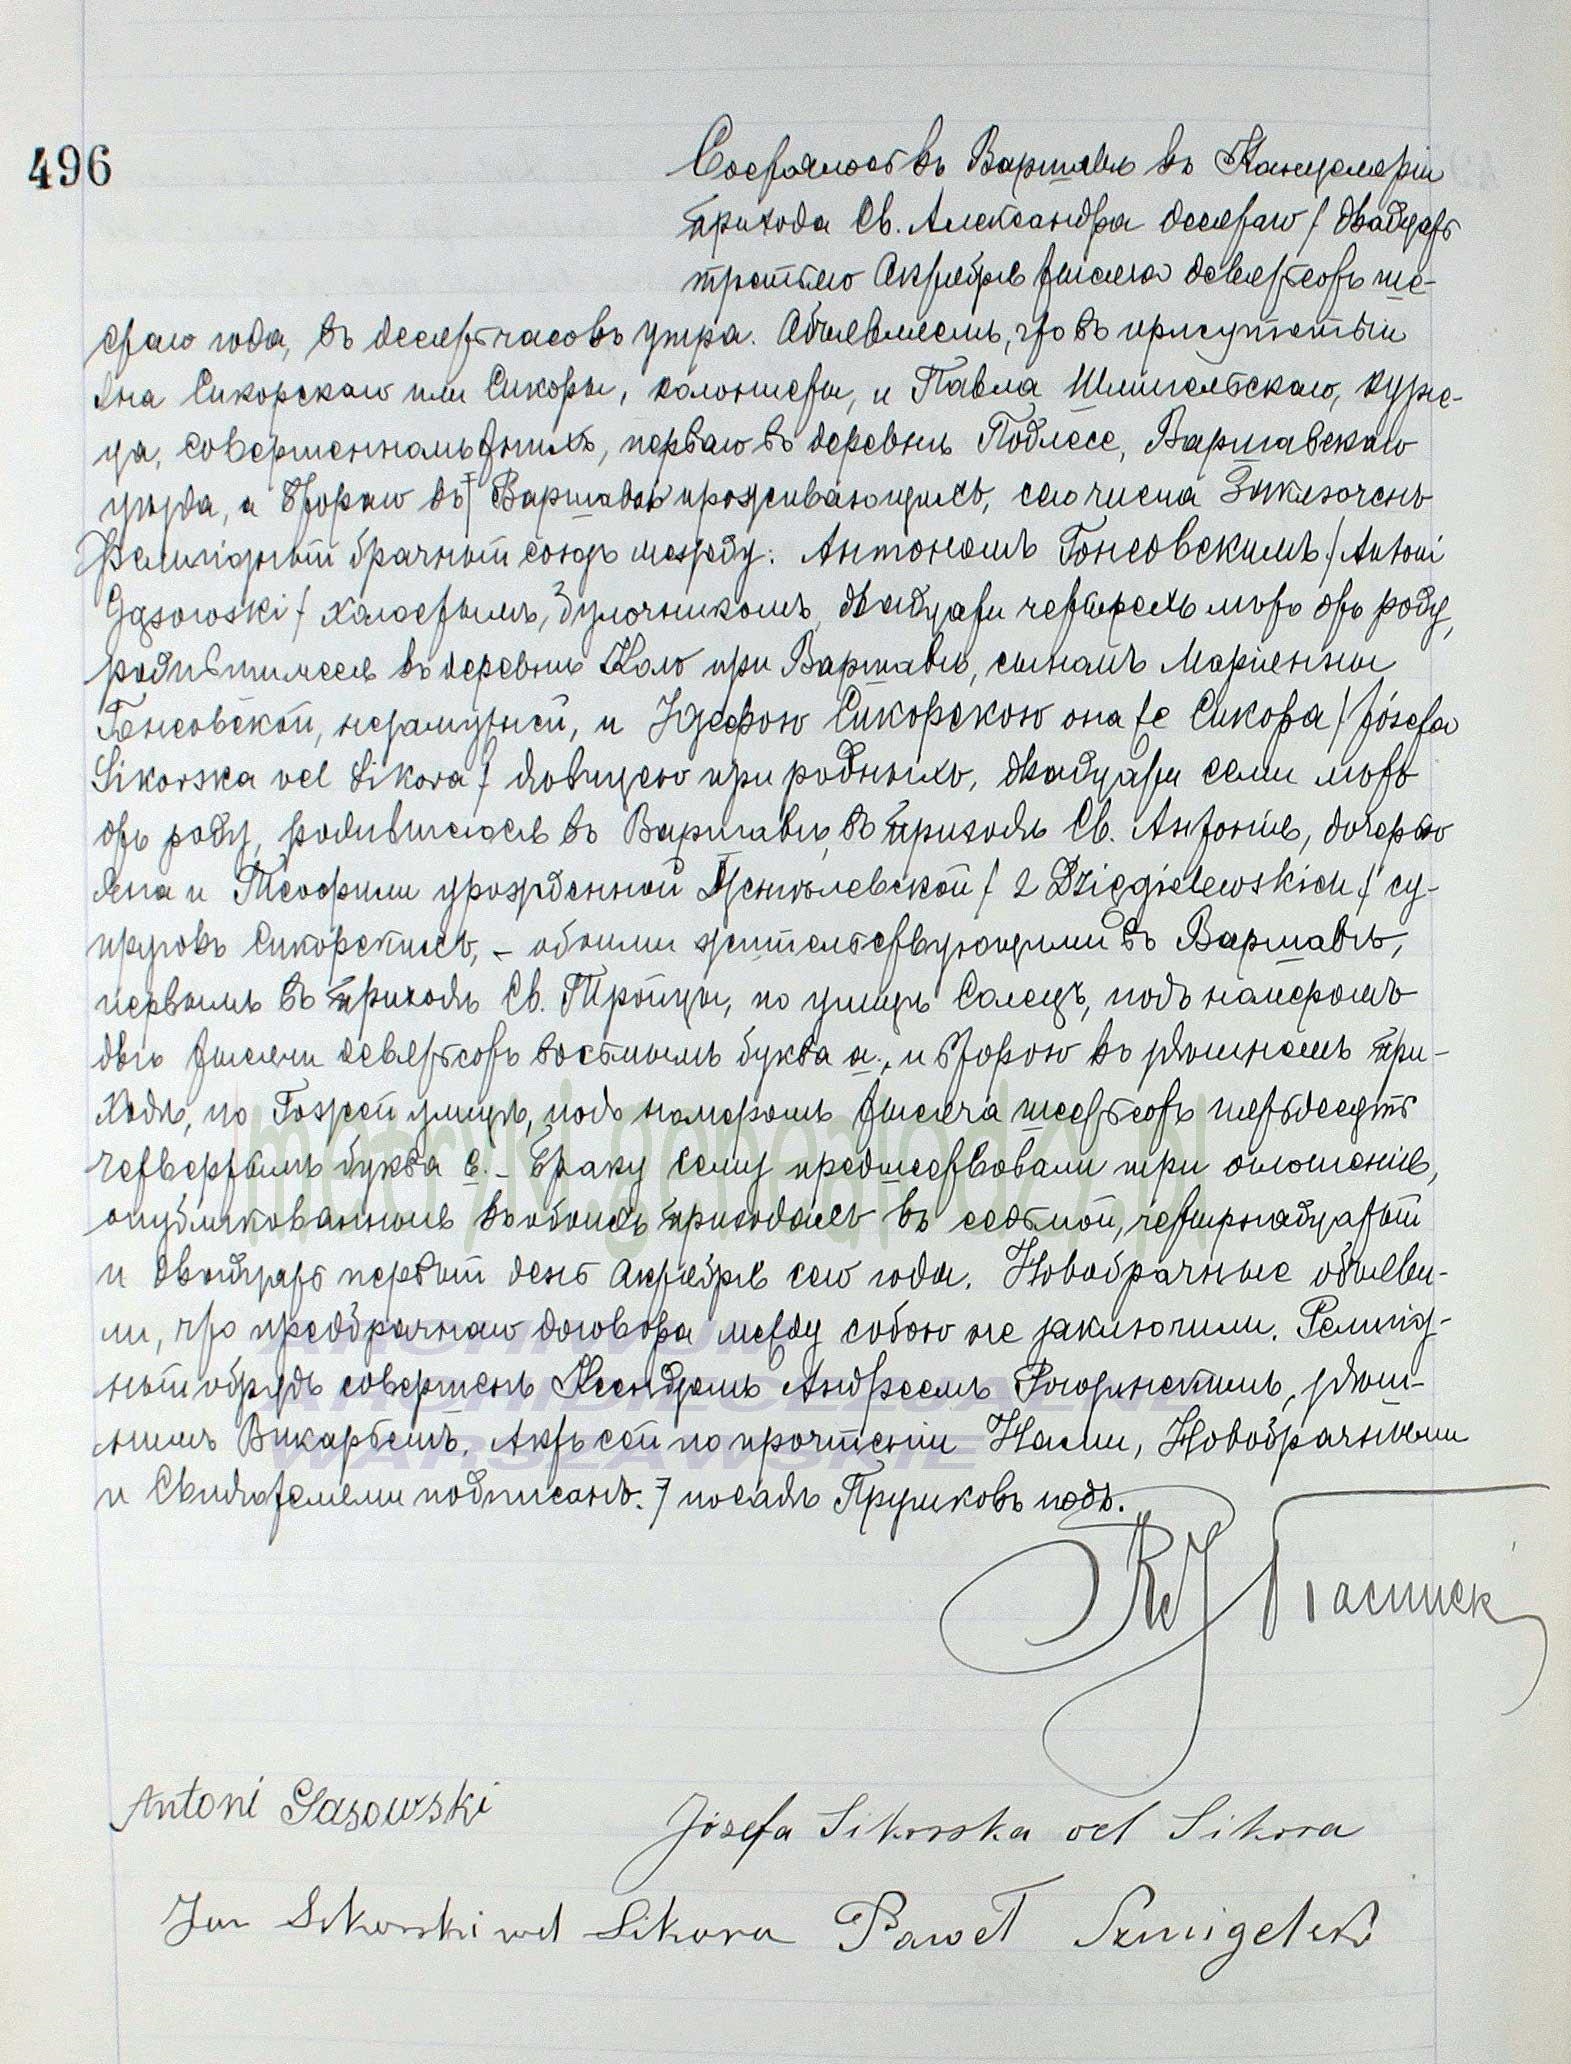 496
Состоялось въ Варшавѣ въ Канцеляріи
прихода Св. Александра десятаго / двадцать
третьяго Октября тысяча девятьсотъ ше-
стаго года, въ десять часовъ утра. Объявляемъ, что въ присутствіи
Яна Сикорскаго или Сикоры, колониста, и Павла Шмигельскаго, кузне-
ца, совершеннолѣтнихъ, перваго въ деревнѣ Подлесе, Варшавскаго
уѣзда, а втораго въ Варшавѣ проживающихъ, сего числа заключенъ
религіозный брачный союзъ между: Антономъ Гонсовскимъ / Antoni
Gąsowski / холостымъ, булочникомъ, двадцати четырехъ лѣтъ отъ роду,
родившимся въ деревнѣ Коло при Варшавѣ, сыномъ Маріянны
Гонсовской, незамужней, и Юзефою Сикорскою она же Сикора / Józefa
Sikorska vel Sikora / дѣвицею при родныхъ, двадцати семи лѣтъ
отъ роду, родившеюся въ Варшавѣ, въ приходѣ Св. Антонія, дочерью
Яна и Теофили урожденной Дзенгелевской / z Dzięgielewskich / су-
пруговъ Сикорскихъ, - обоими жительствующими въ Варшавѣ,
первымъ въ приходѣ Св. Троицы, по улицѣ Солецъ, подъ номеромъ
двѣ тысячи девятьсотъ восьмымъ буква а., и второю въ здѣшнемъ при-
ходѣ, по Гожей улицѣ, подъ номеромъ тысяча шестьсотъ шестьдесятъ
четвертымъ буква с. - Браку сему предшествовали три оглашенія,
опубликованныя въ обоихъ приходахъ въ седьмой, четырнадцатый
и двадцать первый день Октября сего года. Новобрачные объяви-
ли, что предбрачнаго договора между собою не заключили. Религіоз-
ный обрядъ совершенъ Ксендзомъ Андреемъ здѣш-
нимъ Викаріемъ. Актъ сей по прочтеніи Нами, Новобрачными
и Свидѣтелями подписанъ. 7 посадъ Прушковъ подъ.
Antoni Gąsowski
Józefa Sikorska vel Sikora
Jan Sikorski vel Sikora Paweł
metryki.genealodzy.pl
ARCHIWUM
ARCHIDIECEZJALNE
WARSZAWSKIE